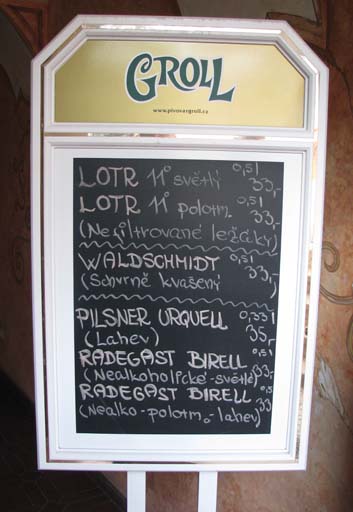 GROLL
www.pivovargroll.cz
LOTR 11° světlý 0,5l 33,-
LOTR 11° polotm. 0,5l 33,-
(Nefiltrované ležáky)
WALDSCHMIDT 0,5l 33,-
(Schvrně kvašený)
PILSNER URQUELL 0,33l 35,-
(Lahev)
RADEGAST BIRELL 0,5l 33,-
(Nealkoholické-světlé)
RADEGAST BIRELL 0,5 33
(Nealko-polotm.-lahev)